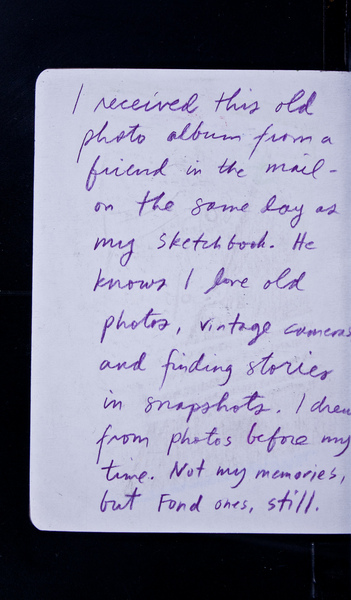 I received this old
photo album from a
friend in the mail -
on the same day as
my sketchbook. He
knows I love old
photos, vintage cameras
and finding stories
in snapshots. I drew
from photos before my
time. Not my memories,
but Fond ones, still.